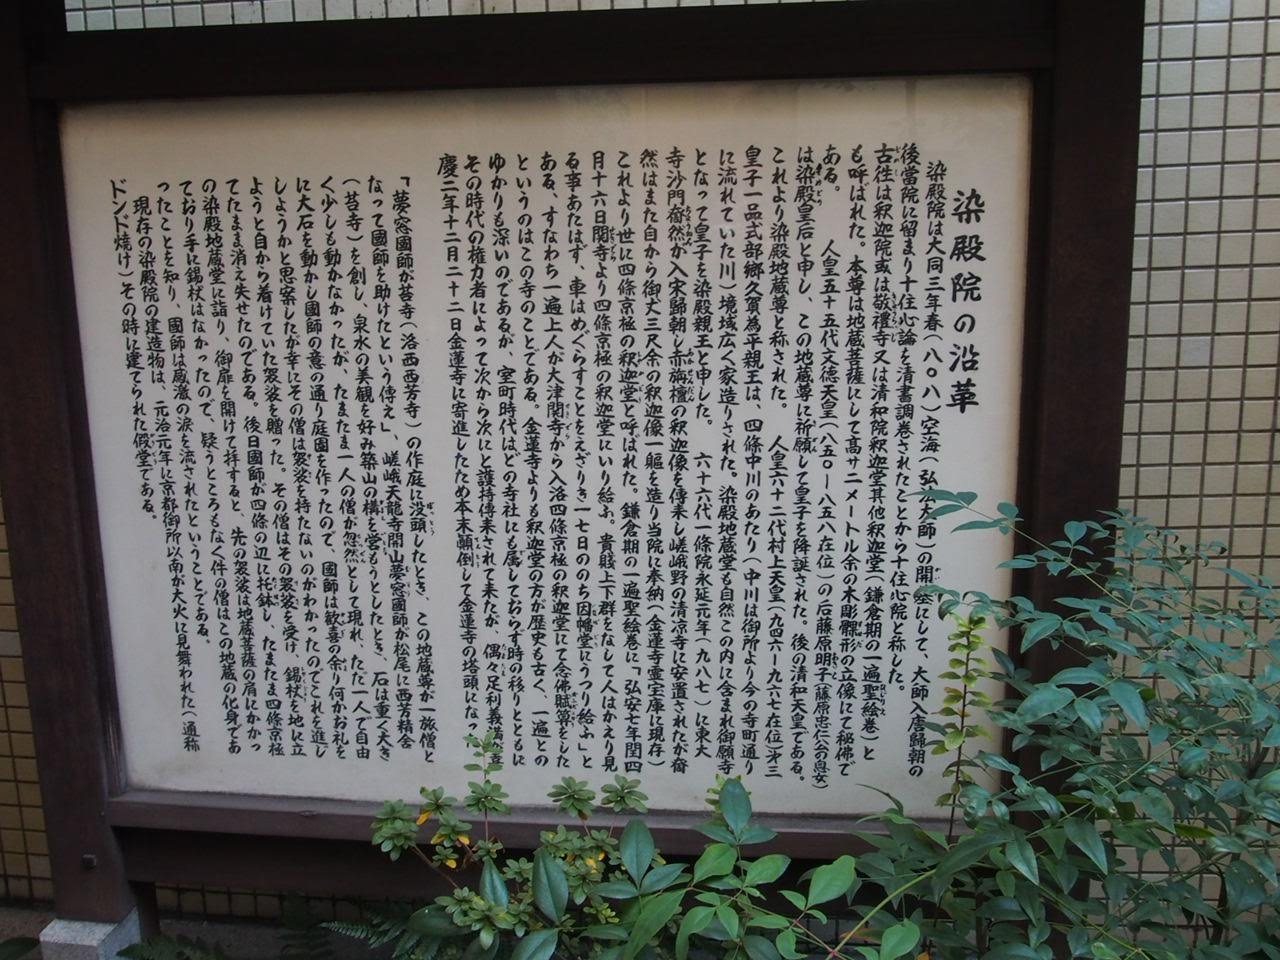 染殿院の沿革
染殿院は大同三年春（八〇八）空海（弘法大師）の開基にして、大師入唐歸朝の
後當院に留まり十住心論を清書調巻されたことから十住心院と称した。
古徃は釈迦院或は敬禮寺又は清和院釈迦堂其他釈迦堂（鎌倉期の一遍聖絵巻）と
も呼ばれた。本尊は地蔵菩薩にして高サ二メートル余の木彫髁形の立像にて秘佛で
ある。 人皇五十五代文徳天皇（八五〇－八五八在位）の后藤原明子（藤原忠仁公の息女）
は染殿皇后と申し、この地蔵尊に祈願して皇子を降誕された。後の清和天皇である。
これより染殿地蔵尊と称された。 人皇六十二代村上天皇（九四六－九六七在位）才三
皇子一品式部郷久賀為平親王は、四條中川のあたり（中川は御所より今の寺町通り
に流れていた川）境域広く家造りされた。染殿地蔵堂も自然この内に含まれ御願寺
となって皇子を染殿親王と申した。 六十六代一條院永延元年（九八七）に東大
寺沙門奝然が入宋歸朝し赤旃檀の釈迦像を傳来し嵯峨野の清凉寺に安置されたが奝
然はまた自から御丈三尺余の釈迦像一軀を造り当院に奉納（金蓮寺霊宝庫に現存）
これより世に四條京極の釈迦堂と呼ばれた。鎌倉期の一遍聖絵巻に「弘安七年閏四
月十六日関寺より四條京極の釈迦堂にいり給ふ。貴賤上下群をなして人はかえり見
る事あたはず、車はめぐらすことをえざりき一七日ののち因幡堂にうつり給ふ」と
ある、すなわち一遍上人が大津関寺から入洛四條京極の釈迦堂にて念佛賦算をした
というのはこの寺のことである。金蓮寺よりも釈迦堂の方が歴史も古く、一遍との
ゆかりも深いのであるが、室町時代はどの寺社にも属しておらず時の移りとともに
その時代の権力者によって次から次にと護持傳来されて来たが、偶々足利義満が嘉
慶二年十二月二十二日金蓮寺に寄進したため本末顛倒して金蓮寺の塔頭になっ
「夢窓國師が苔寺（洛西西芳寺）の作庭に没頭したとき、この地蔵尊が一旅僧と
なって國師を助けたという傳え」、嵯峨天龍寺開山夢窓國師が松尾に西芳精舎
（苔寺）を創し、泉水の美観を好み築山の構を営もうとしたとき、石は重く大き
く少しも動かなかったが、たまたま一人の僧が忽然として現れ、ただ一人で自由
に大石を動かし國師の意の通り庭園を作ったので、國師は歓喜の余り何かお礼を
しようかと思案したが幸にその僧は袈裟を持たないのがわかったのでこれを進し
ようと自から着けていた袈裟を贈った。その僧はその袈裟を受け、錫杖を地に立
てたまま消え失せたのである。後日國師が四條の辺に托鉢し、たまたま四條京極
の染殿地蔵堂に詣り、御扉を開けて拝すると、先の袈裟は地蔵菩薩の肩にかかっ
ており手に錫杖はなかったので、疑うところもなく件の僧はこの地蔵の化身であ
ったことを知り、國師は感激の涙を流されたということである。
現存の染殿院の建造物は、元治元年に京都御所以南が大火に見舞われた（通称
ドンド焼け）その時に建てられた假堂である。